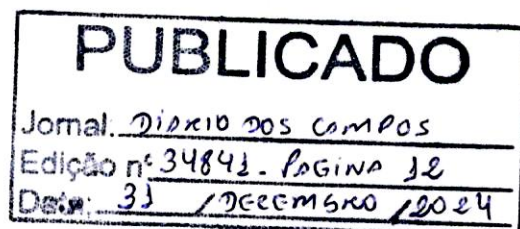 PUBLICADO
Jornal: DIÁRIO DOS CAMPOS
Edição nº 34841 - PÁGINA 12
Data: 31 / DEZEMBRO / 2024